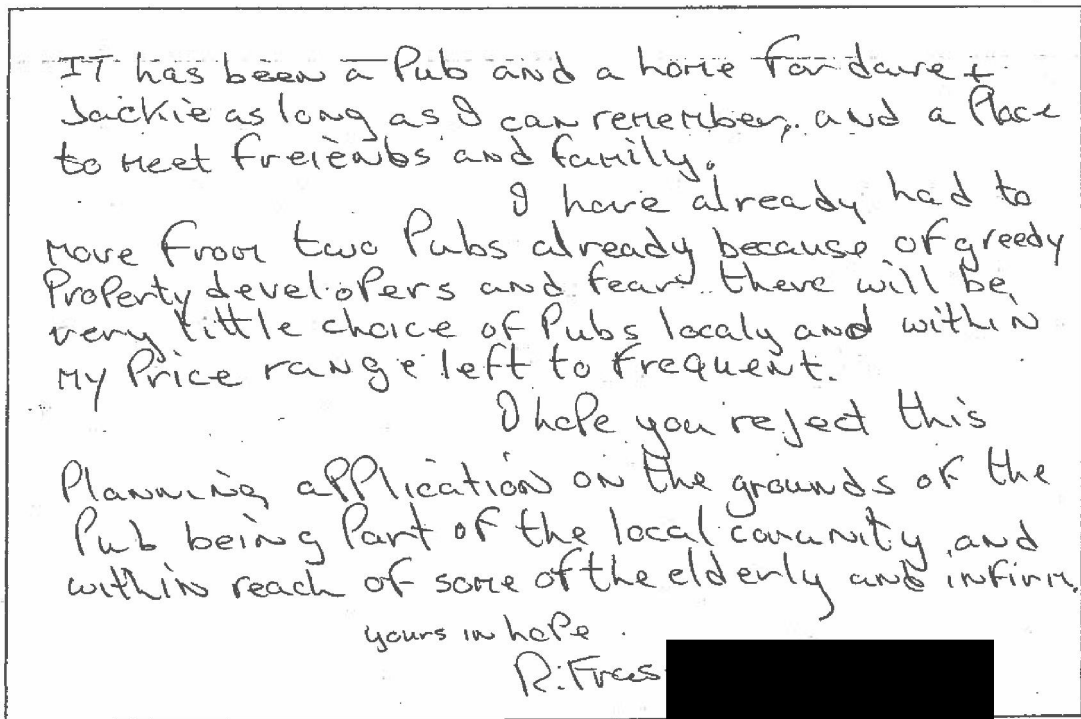 IT has been a Pub and a home for dave +
Jackie as long as I can remember, and a Place
to meet freiends and family.
I have already had to
move from two Pubs already because of greedy
Property developers and fear there will be
very little choice of Pubs localy and within
my Price range left to frequent.
I hope you reject this
Planning application on the grounds of the
Pub being Part of the local comunity, and
within reach of some of the elderly and infirm.
yours in hope.
R. Fras